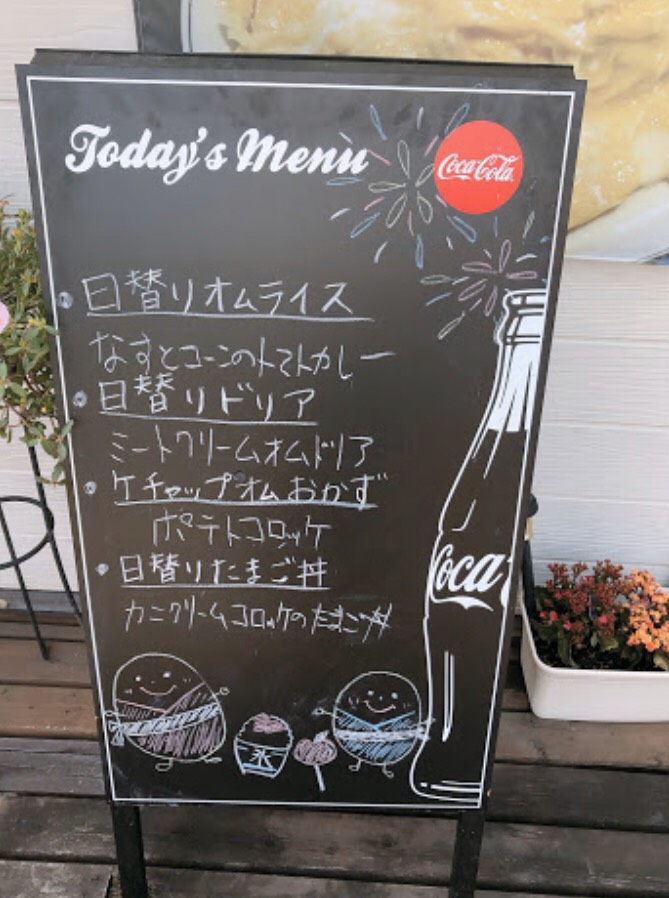 Today's Menu
Coca-Cola
日替りオムライス
なすとコーンのトマトカレー
日替りドリア
ミートクリームオムドリア
ケチャップオムおかず
ポテトコロッケ
日替りたまご丼
カニクリームコロッケのたまご丼
Coca
氷